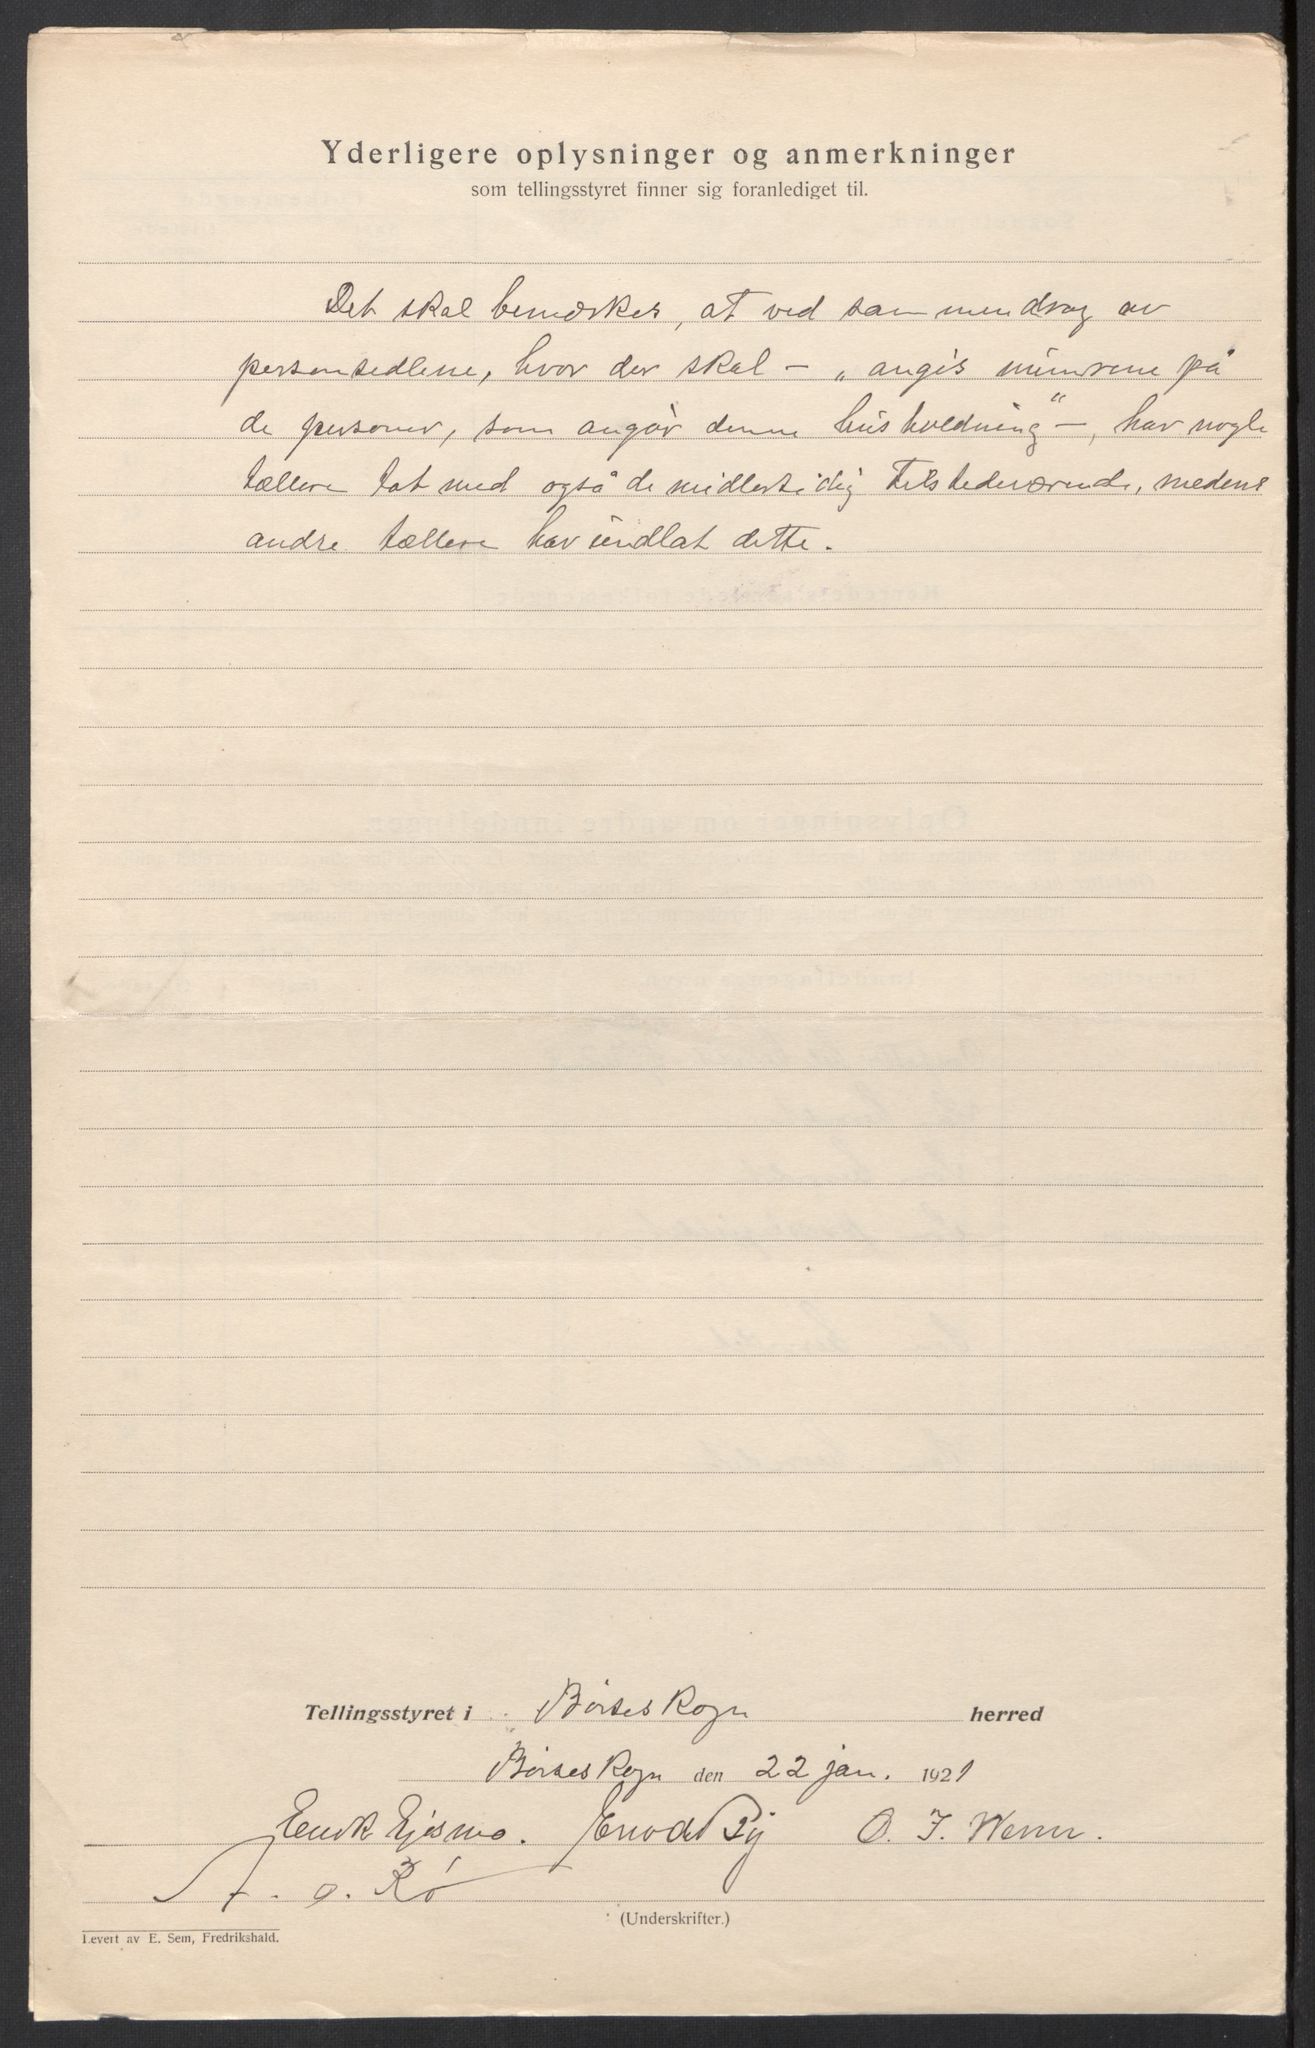 Yderligere oplysninger og anmerkninger
som tellingsstyret finner sig foranlediget til.
Det skal bemærkes, at ved sammendrag av
personsedlene, hvor der skal - „angis numrene på
de personer, som angår denne husholdning" -, har nogle
tællere tat med også de midlertidig tilstedeværende, medens
andre tællere har undlat dette.
Tellingsstyret i Börseskogn herred
Börseskogn den 22 jan. 1921
O. J. Werner.
A. O. Rö
(Underskrifter.)
Levert av E. Sem, Fredrikshald.